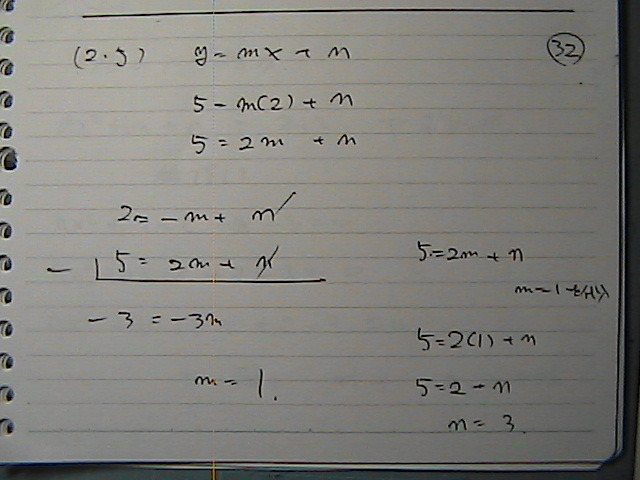 (2.5) y = mx + n
32
5 - m(2) + n
5 = 2m + n
2 = - m + n
- 5 = 2m + n
- 3 = -3m
m = 1.
5 = 2m + n
m = 1
5 = 2(1) + n
5 = 2 + n
n = 3.